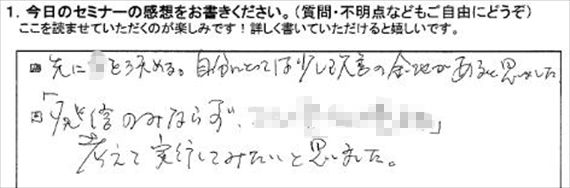 1. 今日のセミナーの感想をお書きください。(質問・不明点などもご自由にどうぞ)
ここを読ませていただくのが楽しみです!詳しく書いていただけると嬉しいです。
先に を決める。自分にとっては少し改善の余地があると思いました
「発信のみならず、 」
考えて実行してみたいと思いました。